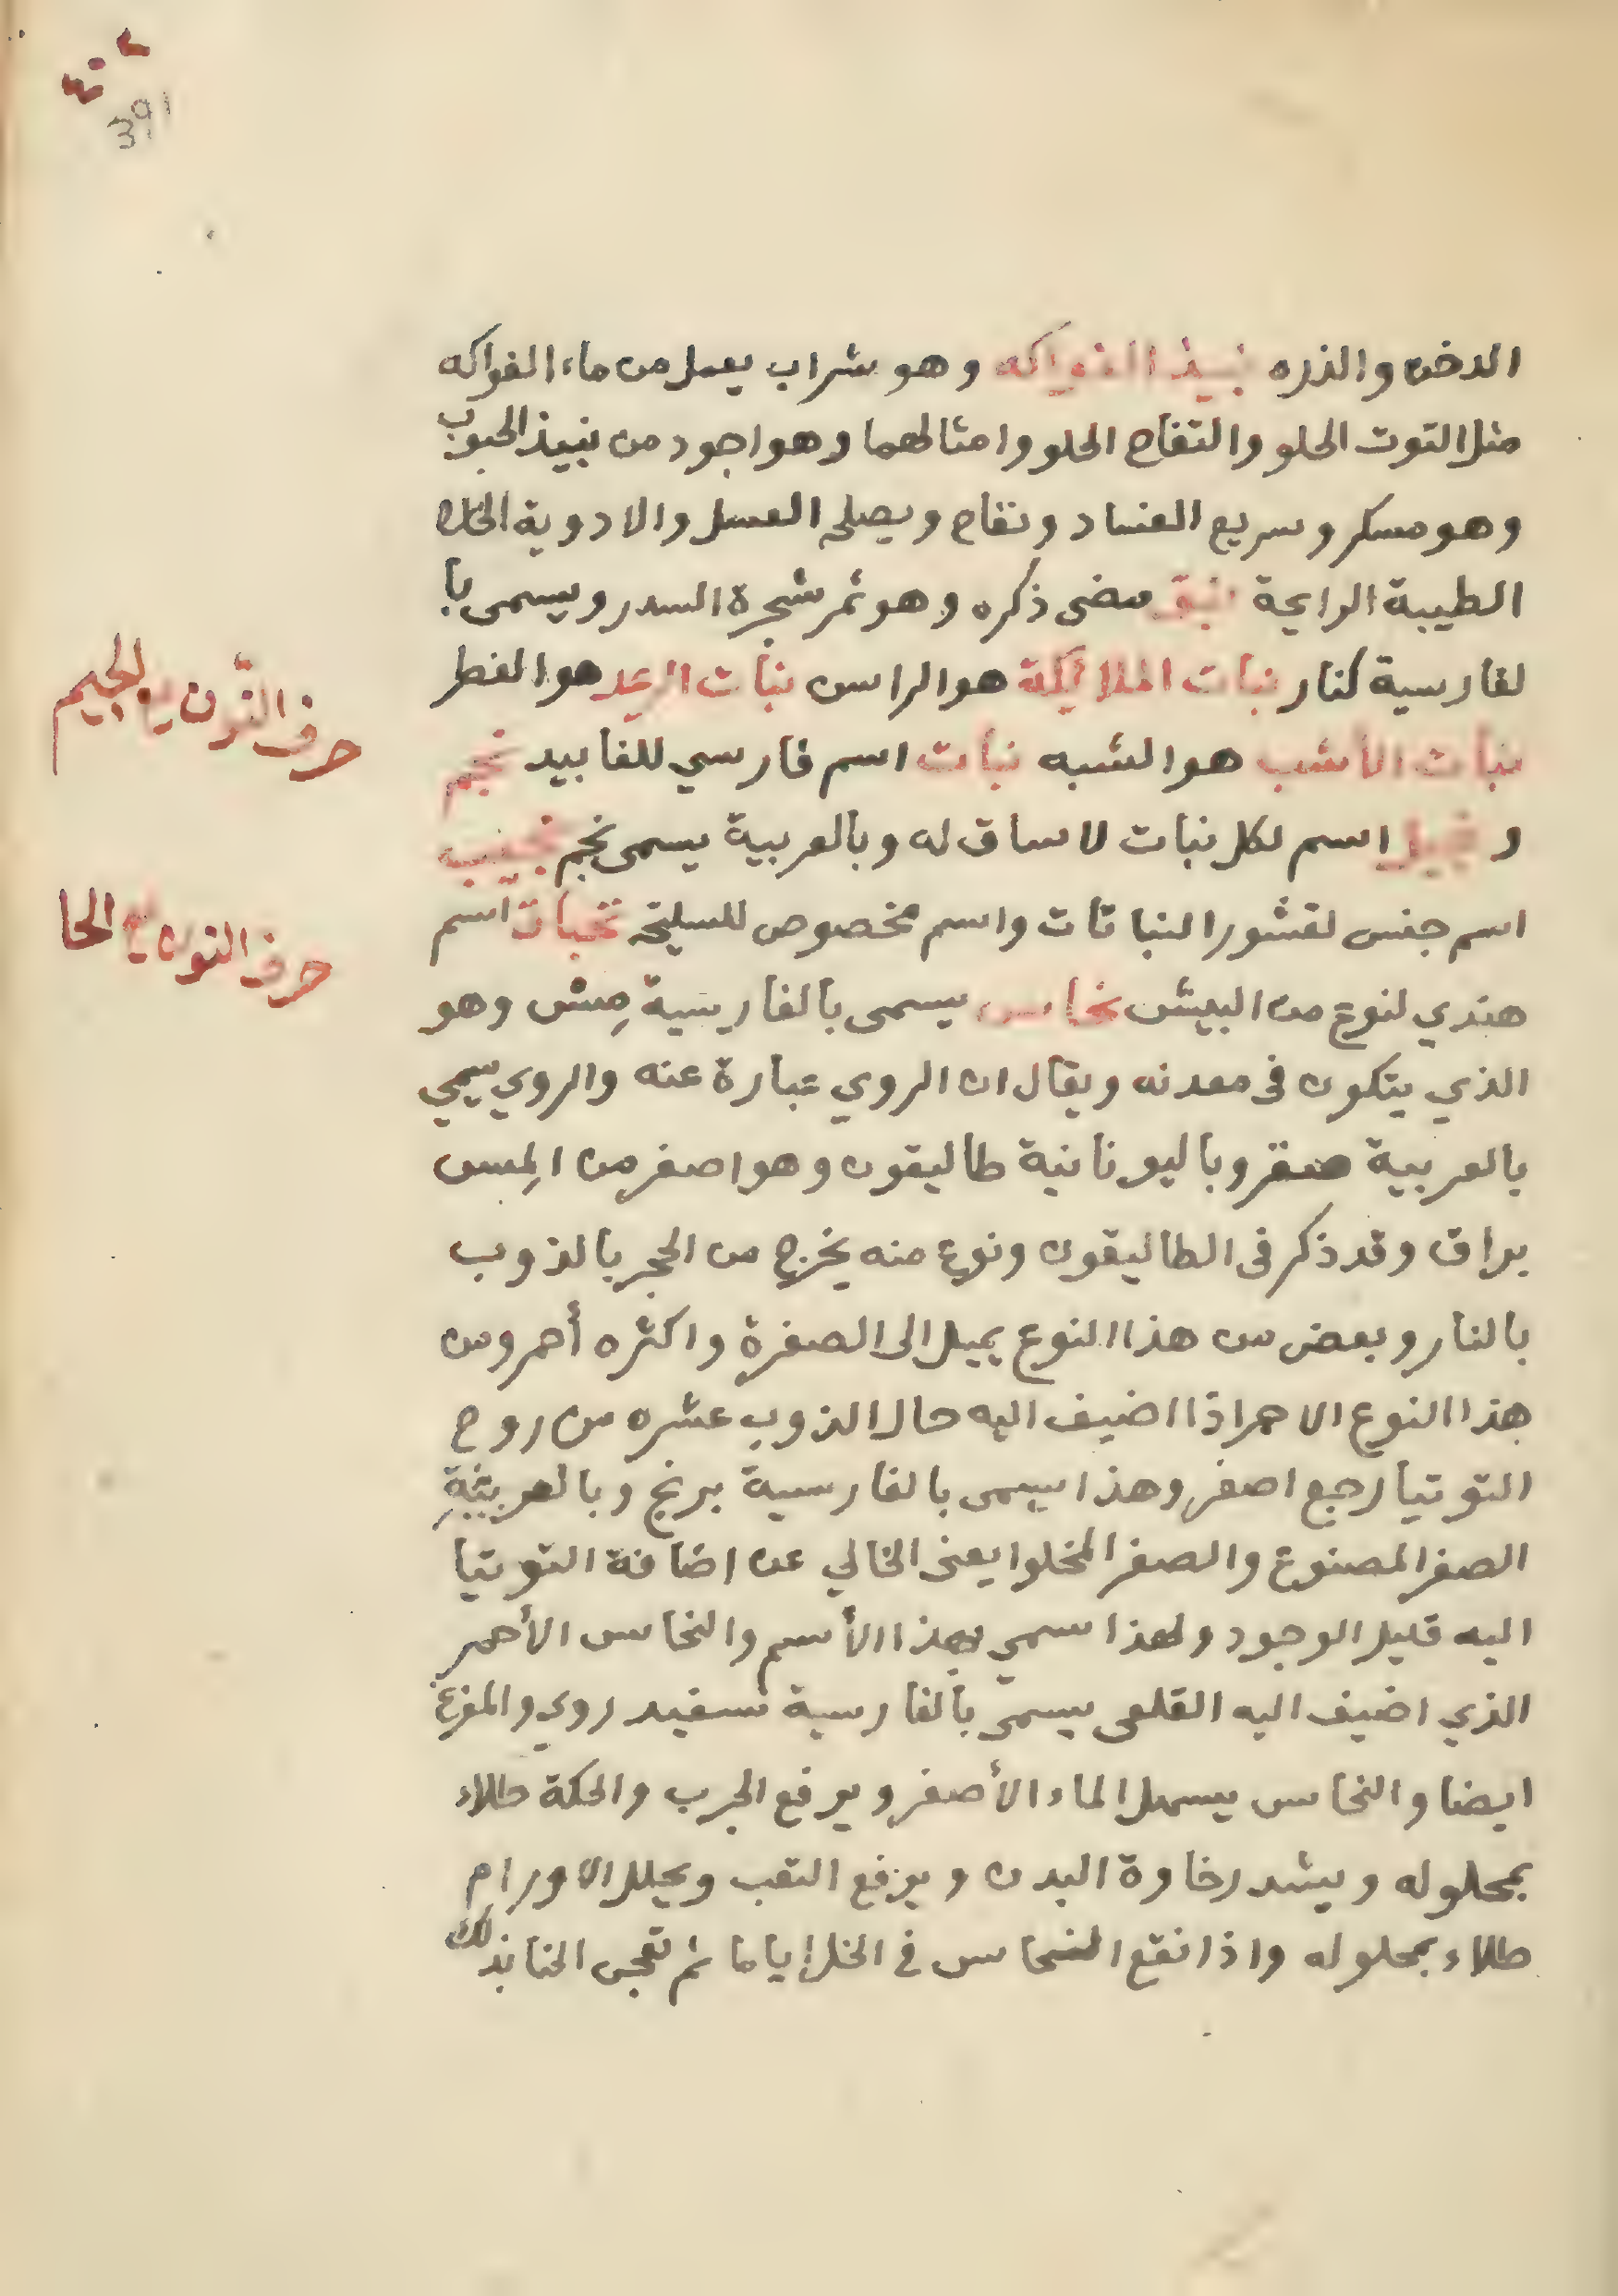 391
الدخن والذره نبيذ الفواكه وهو شراب يعمل من ماء الفواكه
مثل التوت الحلو والتفاح الحلو وامثالهما وهو اجود من نبيذ الحبوب
وهو مسكر وسريع الفساد ونفاح ويصلحه العسل والادوية الحاره
الطيبة الرايحة نبق مضى ذكره وهو ثمر شجرة السدر ويسمى با
لفارسية كنار نبات الملائكة هو الراسن نبات الرعد هو الفطر
حرف النون مع الجيم
نبات الأشب هو الشبه نبات اسم فارسي للفانيد نجم
و نجيل اسم لكل نبات لا ساق له وبالعربية يسمى نجم نجيب
اسم جنس لقشور النباتات واسم مخصوص للسليخه اسم
حرف النون مع الحا
هندي لنوع من البيش نحاس يسمى بالفارسية مِس وهو
الذي يتكون فى معدنه ويقال ان الروي عبارة عنه والروي يسمي
بالعربية صفر وباليونانية طاليقون وهو اصفر من المِس
براق وقد ذكر فى الطاليقون ونوع منه يخرج من الحجر بالذوب
بالنار وبعض من هذا النوع يميل الى الصفرة واكثره أحمر ومن
هذا النوع الاحمر اذا اضيف اليه حال الذوب عشره من روح
التوتيا رجع اصفر وهذا يسمى بالفارسية برنج وبالعربيّةِ
الصفر المصنوع والصفر المخلوا يعنى الخالي عن اضافة التوتيا
اليه قليل الوجود ولهذا سمي بهذا الأسم والنحاس الأحمر
الذي اضيف اليه القلعى يسمى بالفارسية سفيد روي والمفرغ
ايضا والنحاس يسهل الماء الأصفر ويرفع الجرب والحكة طلاء
بمحلوله ويشد رخاوة البدن ويرفع التعب ويحلل الاورام
طلاء بمحلوله واذا نقع النحاس في الخل إياما ثم تعجن الحنا بذلك